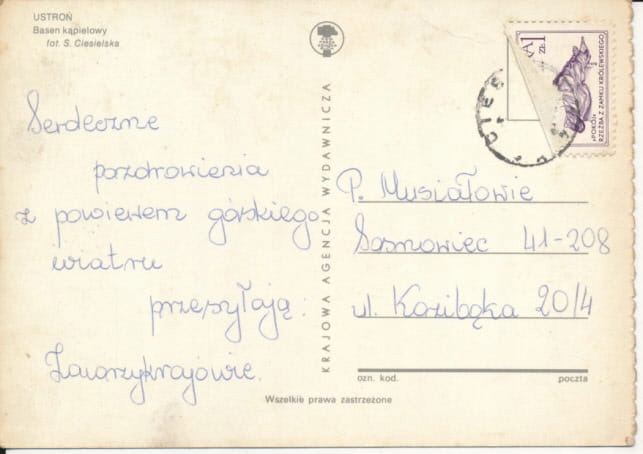 USTROŃ
Basen kąpielowy
fot. S. Ciesielska
Serdeczne
pozdrowienia
z powiewem górskiego
wiatru
przesyłają:
KRAJOWA AGENCJA WYDAWNICZA
1
ZŁ
«POKÓJ»
RZEŹBA Z ZAMKU KRÓLEWSKIEGO
P. Musiałowie
Sosnowiec 41-208
ul. Kozibąka 20/4
ozn. kod. poczta
Wszelkie prawa zastrzeżone